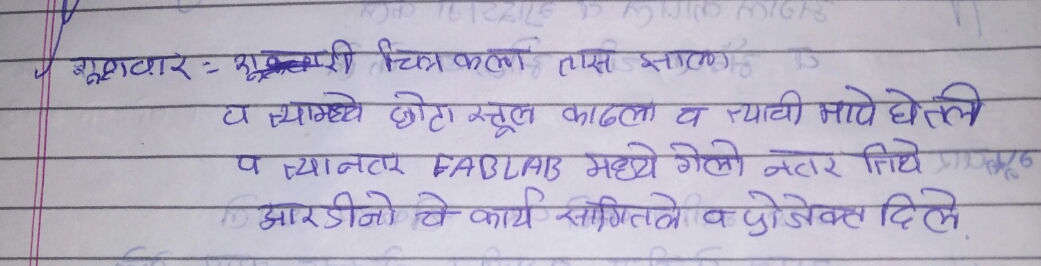 शूक्रवार = शूक्रवारी चित्र कला तास झाला
व त्यामध्ये छोटा स्टूल काढला व त्याची मापे घेतली
व त्यानतर FABLAB मध्ये गेलो नतर तिथे
आरडीनो चे कार्य सागितले व प्रोजेक्ट दिले.